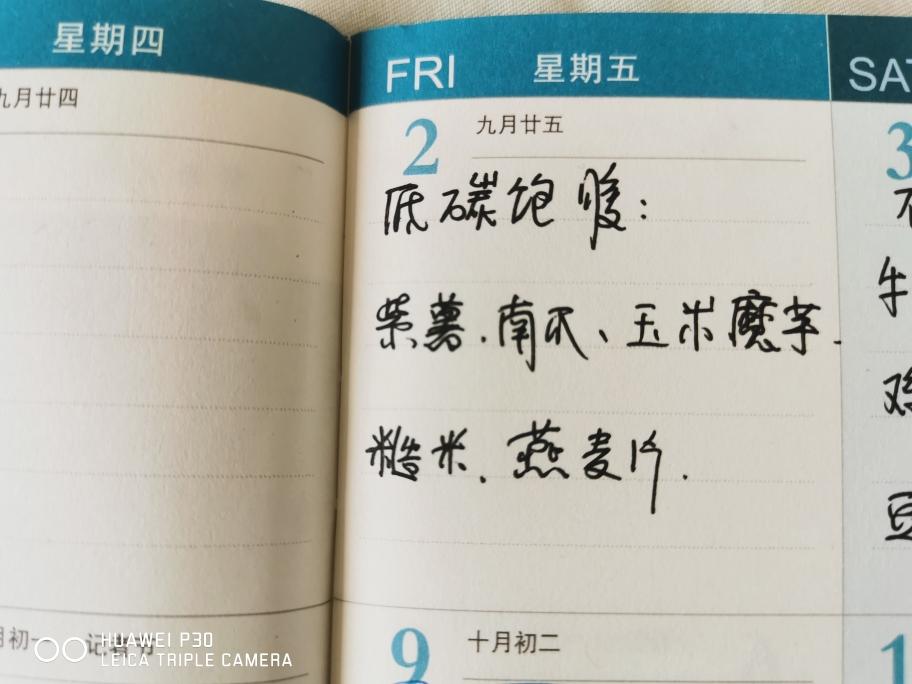 星期四
FRI 星期五
SAT
九月廿四
2 九月廿五
3
低碳饱腹：
紫薯、南瓜、玉米魔芋、
牛
鸡
糙米、燕麦片.
豆
初一 记者节
9 十月初二
1
HUAWEI P30
LEICA TRIPLE CAMERA